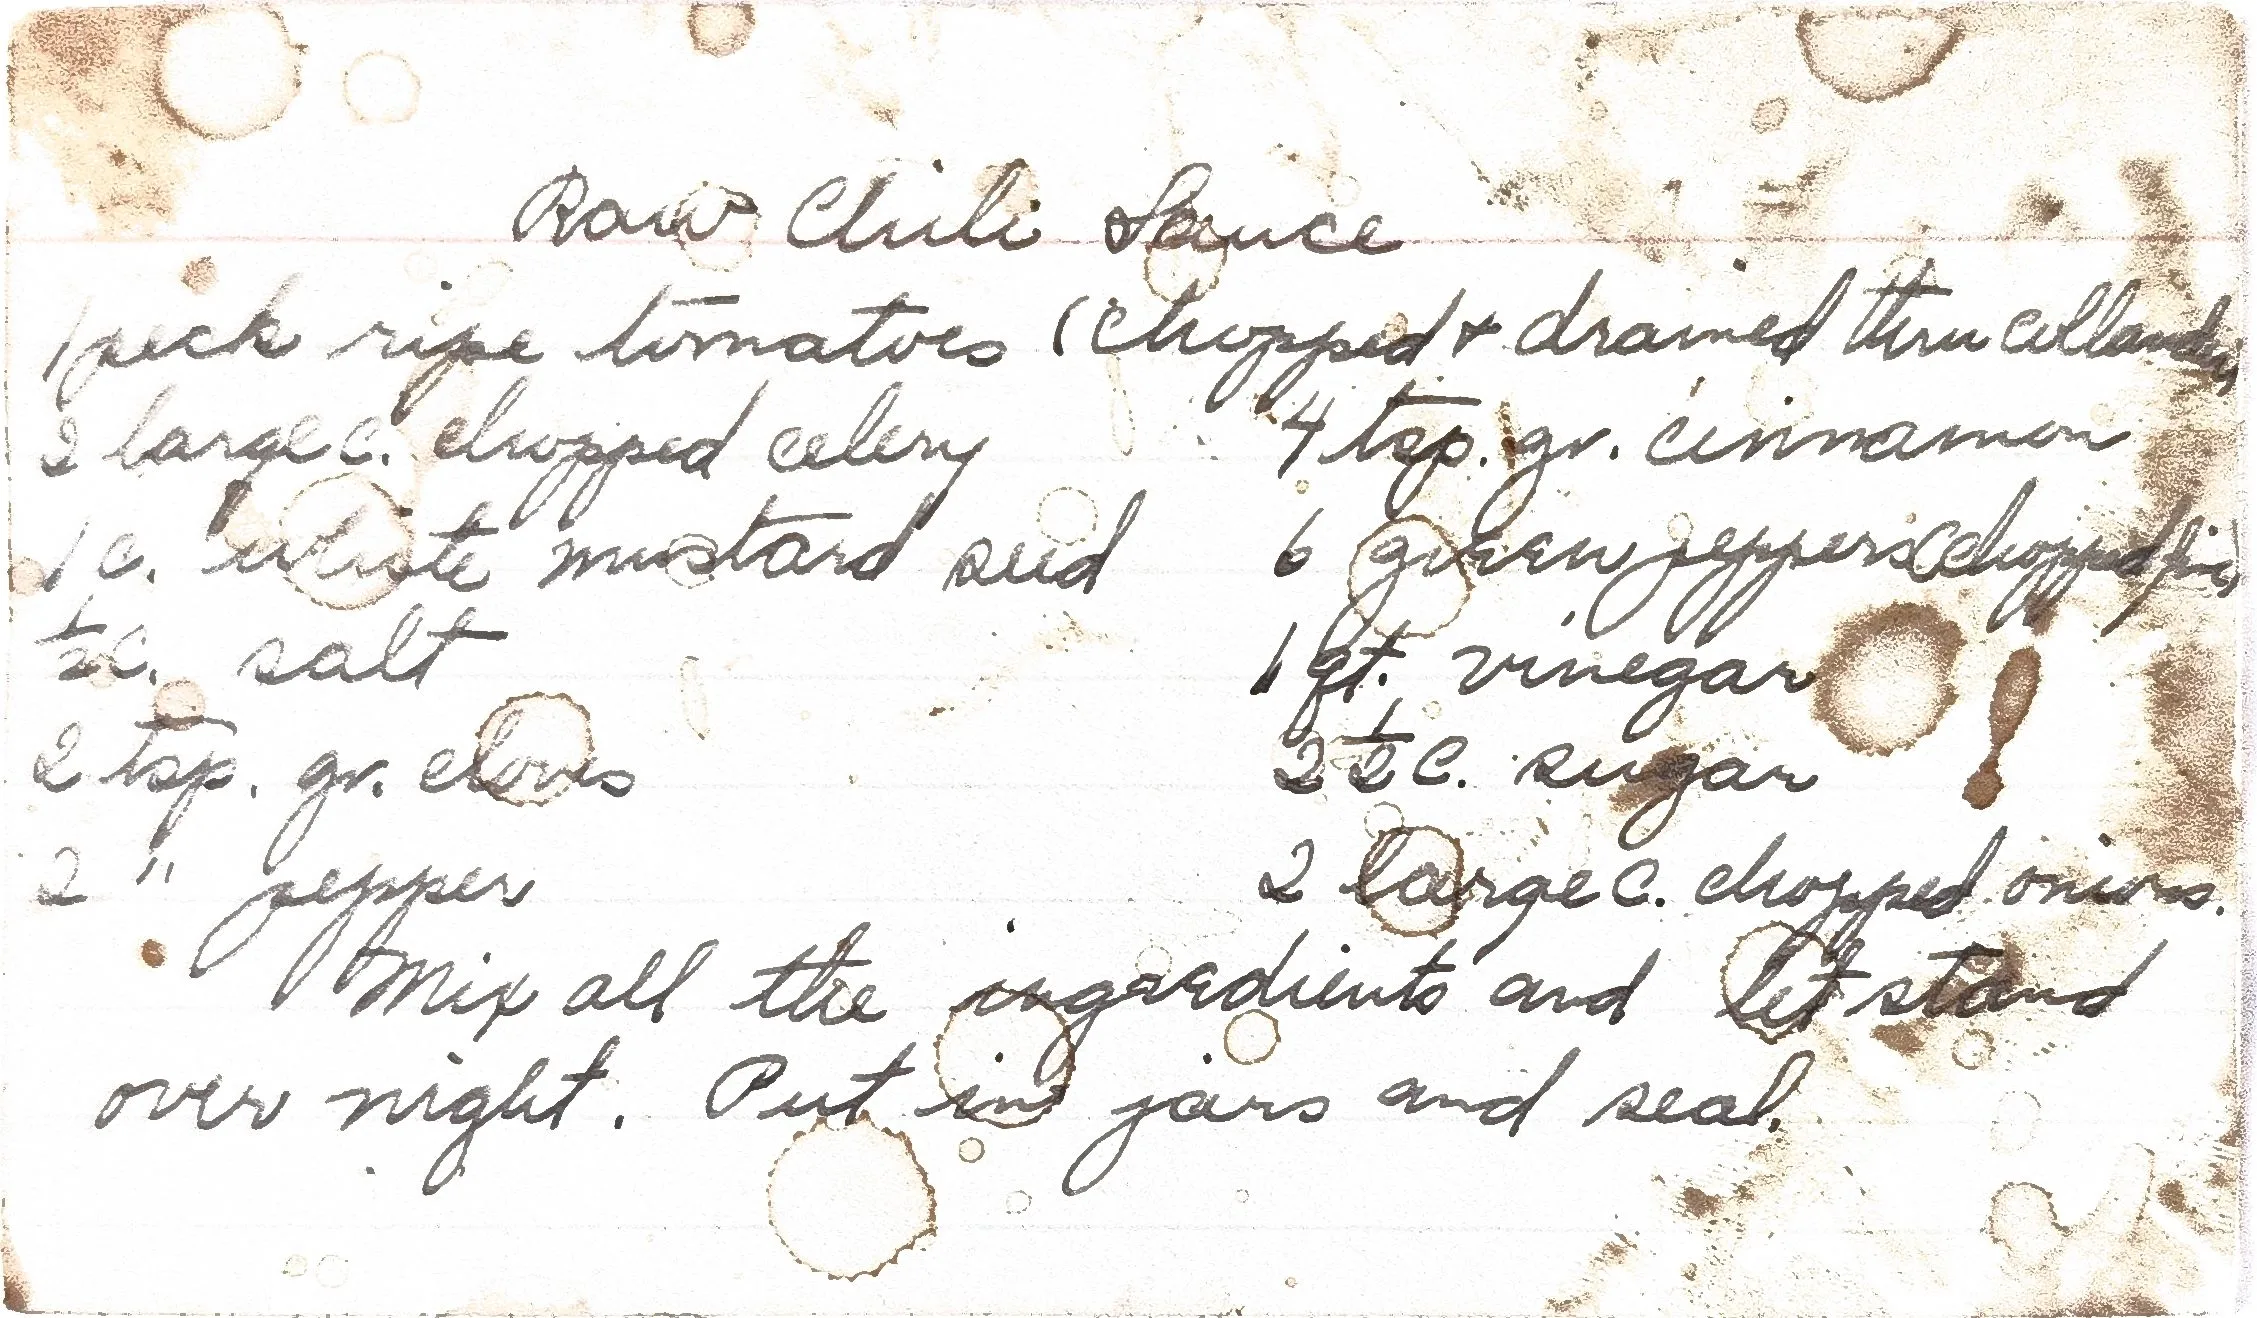 Raw Chili Sauce
1 peck ripe tomatoes (chopped & drained thru collander)
2 large c. chopped celery
4 tsp. gr. cinnamon
1 c. white mustard seed
6 green peppers (chopped fine)
1/2 c. salt
1 qt. vinegar
2 tsp. gr. cloves
2 1/2 c. sugar
2 " pepper
2 large c. chopped onions.
Mix all the ingredients and let stand
over night. Put in jars and seal.